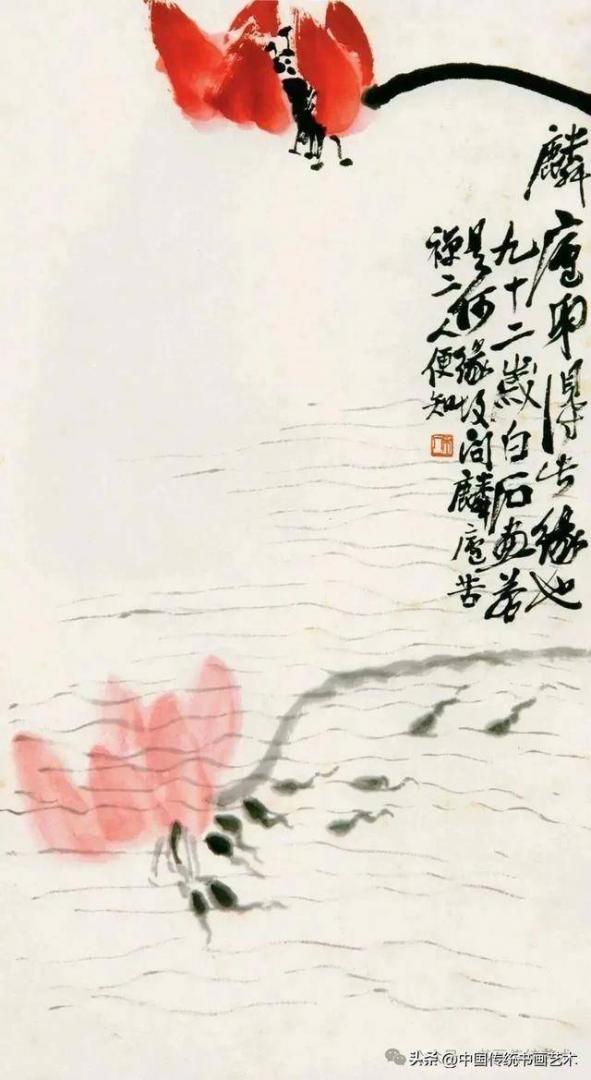 麟廬弟得此緣也
九十二歲白石畫若
是何緣故問麟廬苦
禪二人便知
头条 @中国传统书画艺术